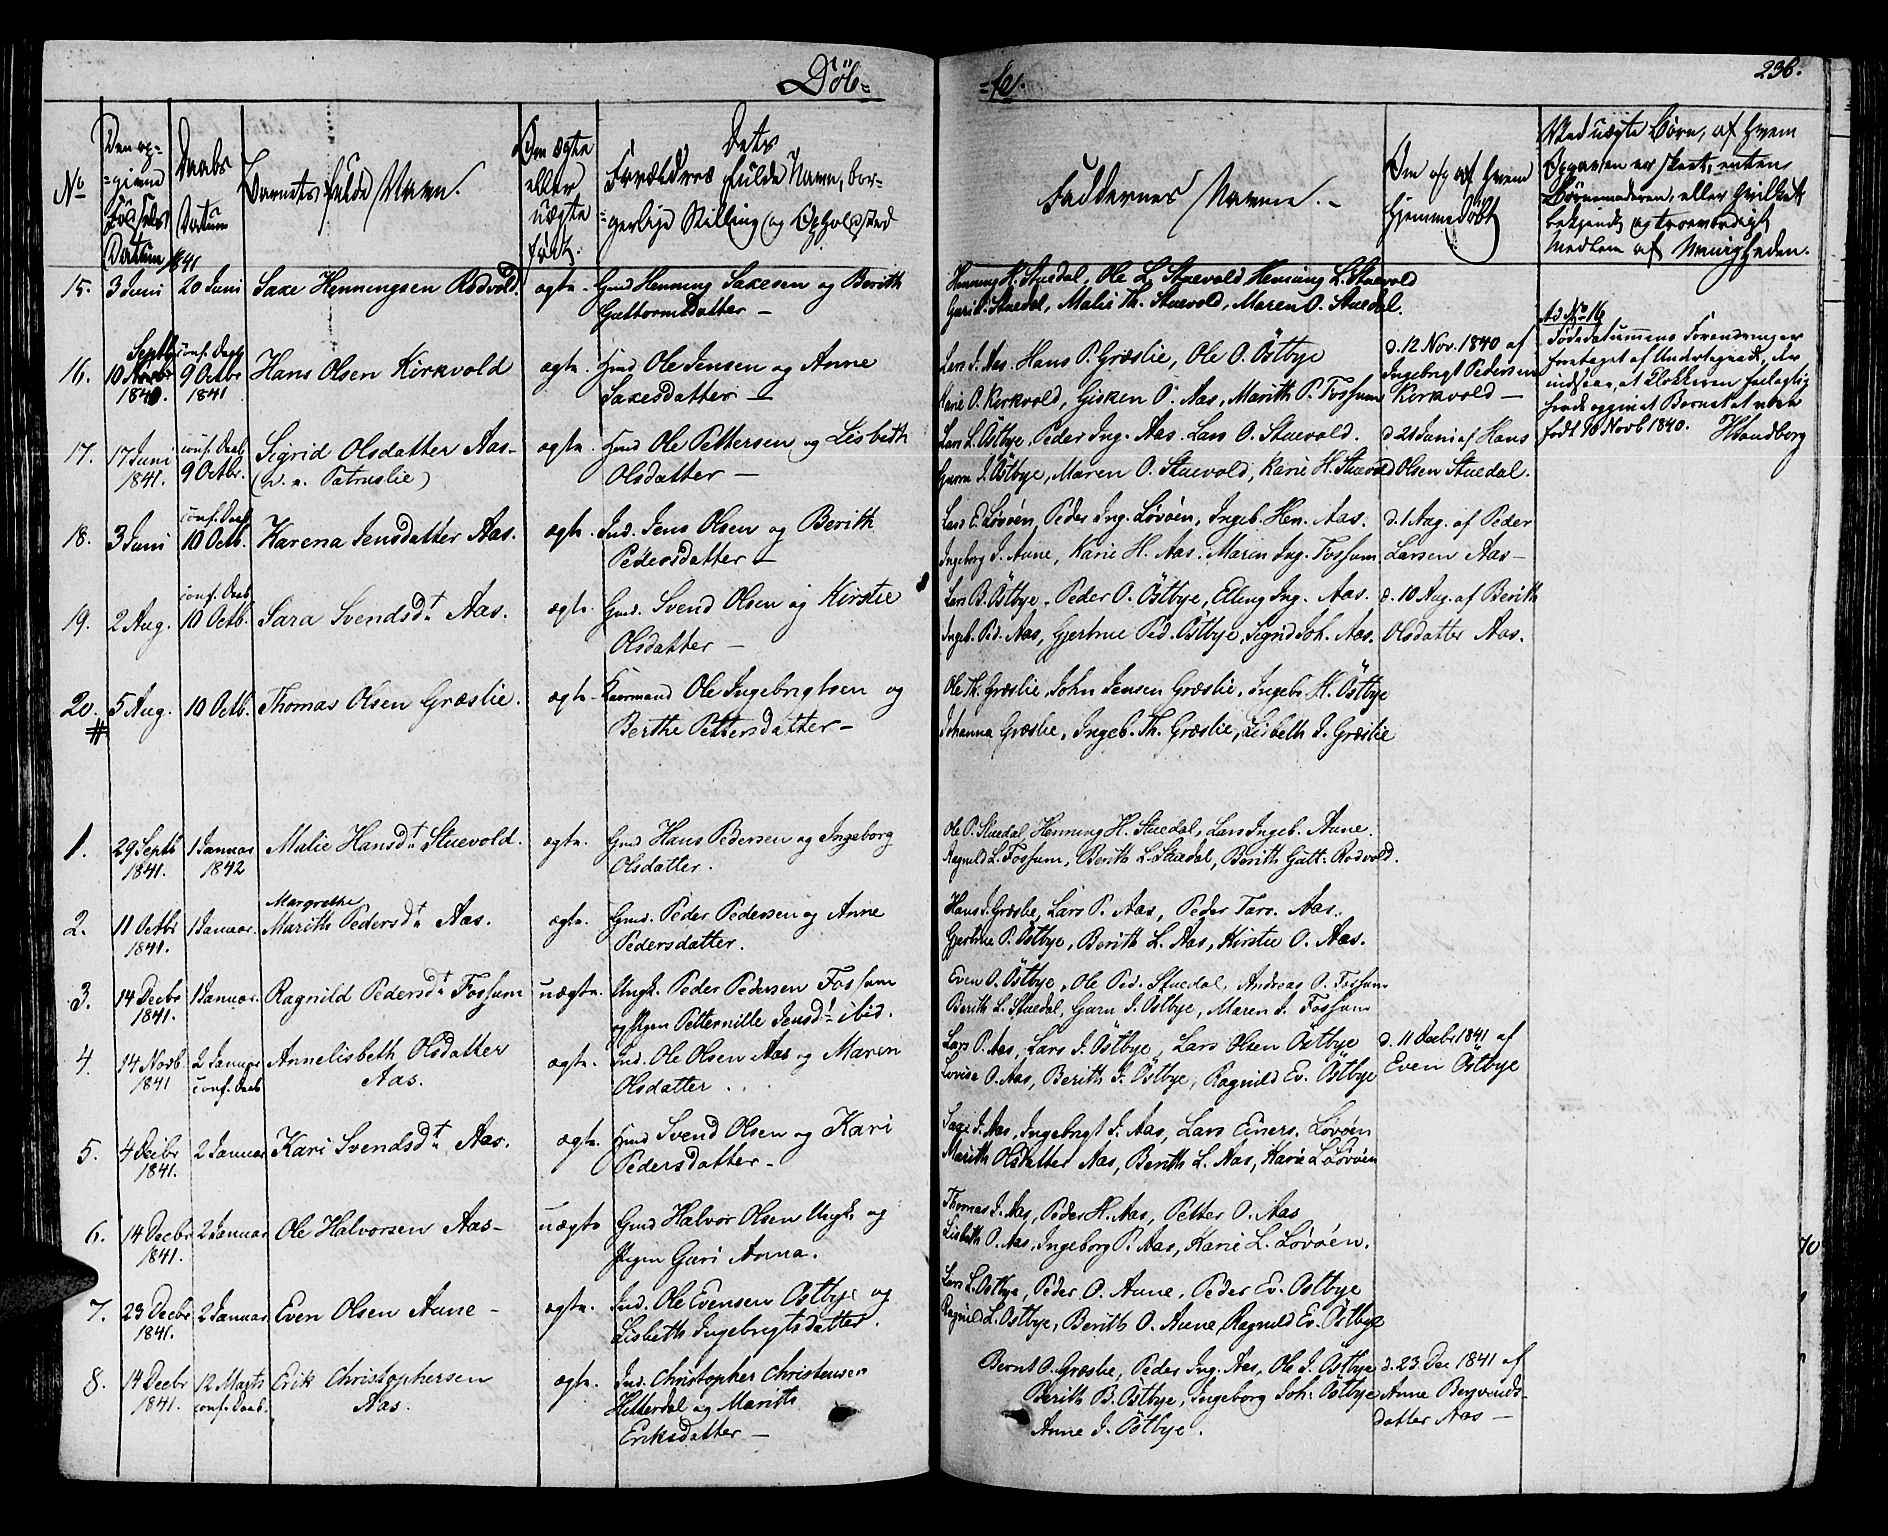 Döb=
=te.
236.
No
Den op=
=givne
Födsels
Datum
Daabs
Datum
Barnets fulde Navn.
Om ægte
eller
uægte
født.
Dets
Forældres fulde Navn, bor=
=gerlige Stilling og Opholdssted
Faddernes Navne. -
Om og af hvem
hjemmedøbt
Ved uægte Børn, af hvem
Opgaven er skeet, enten
Børnemoderen, eller hvilket
bekjendt og troeværdigt
Medlem af Menigheden.
1841
15. 3 Juni 20 Juni Saxe Henningsen Rodvold. ægte. Gmd Henning Saxesen og Berith
Guttormsdatter -
Henning H. Stuedal, Ole L. Stuevold Henning L. Stuevold
Guri O. Stuedal, Malie Th. Stuevold, Maren O. Stuedal.
16. Septbr 10 Novbr 1840. conf. Daab 9 Octbr 1841 Hans Olsen Kirkvold ægte. Gmd Ole Jensen og Anne
Saxesdatter -
Lars J. Aas. Hans P. Græslie, Ole O. Östbye
Karie O. Kirkvold, Gisken O. Aas, Marith P. Fossum
d. 12 Nov. 1840 af
Ingebrigt Pedersen
Kirkvold -
Ad No 16
Fødedatummens Forandringer
foretaget af Undertegnede, der
indsaae, at Klokkeren feilagtig
havde opgivet Barnet at være
født 10 Novb 1840. HSandborg
17. 17 Juni 1841. conf. Daab 9 Octbr. Sigrid Olsdatter Aas-
(v. n. Patruslie)
ægte. Gmd Ole Pettersen og Lisbeth
Olsdatter -
Lars L. Östbye, Peder Ing. Aas. Lars O. Stuevold.
Guren J. Östbye, Maren O. Stuevold, Karie H. Stuevold
d 21 Juni af Hans
Olsen Stuedal.
18. 3 Juni conf. Daab 10 Octb. Karena Jensdatter Aas. ægte. Ind. Jens Olsen og Berith
Pedersdatter -
Lars E. Løvøen, Peder Ing. Løvøen, Ingeb. Hen. Aas.
Ingeborg J. Aune, Karie H. Aas. Maren Ing. Fossum.
d. 1 Aug. af Peder
Larsen Aas-
19. 2 Aug. conf. Daab 10 Octb. Sara Svendsdt Aas. ægte. Gmd. Svend Olsen og Kirstie
Olsdatter -
Lars B. Östbye, Peder O. Östbye, Elling Ing. Aas.
Ingeb. Ped. Aas, Gjertrue Ped. Östbye, Sigrid Joh. Aas.
d. 10 Aug. af Berith
Olsdatter Aas.
20. 5 Aug. 10 Octb. Thomas Olsen Græslie. ægte. Kaarmand Ole Ingebrigtsen og
Berthe Pettersdatter -
Ole Th. Græslie, John Jensen Græslie, Ingebr. H. Östbye
Johanna Græslie, Ingeb. Th. Græslie, Lisbeth J. Græslie
1. 29 Septb 1841. 1 Januar 1842 Malie Hansdt Stuevold. ægte. Gmd Hans Pedersen og Ingeborg
Olsdatter.
Ole P. Stuedal, Henning H. Stuedal, Lars Ingeb. Aune.
Ragnild L. Fossum, Berith L. Stuedal, Berith Gutt. Rodvold.
2. 11 Octbr 1841. 1 Januar. Margrethe
Marith Pedersdt Aas. ægte. Gmd. Peder Pedersen og Anne
Pedersdatter.
Hans J. Græslie, Lars P. Aas, Peder Tars. Aas.
Gjertrue P. Östbye, Berith L. Aas, Kirstie O. Aas.
3. 14 Decbr 1841. 1 Januar. Ragnild Pedersdt Fossum uægte. Ungk. Peder Pedersen Fossum
og Pigen Petternille Jensdt ibid.
Even O. Östbye, Ole Ped. Stuedal, Andreas O. Fossum
Berith L. Stuedal, Guru J. Östbye, Maren J. Fossum
4. 14 Novb 1841 2 Januar conf. Daab Annelisbeth Olsdatter
Aas.
ægte. Ind. Ole Olsen Aas og Maren
Olsdatter . .
Lars P. Aas, Lars J. Östbye, Lars Olsen Östbye
Lovise O. Aas, Berith J. Östbye, Ragnild Ev. Östbye
d. 11 Decbr 1841 af
Even Östbye
5. 4 Decbr 1841. 2 Januar Kari Svendsdt Aas. ægte. Gmd Svend Olsen og Kari
Pedersdatter -
Saxe J. Aas, Ingebrigt J. Aas, Lars Ejners. Løvøen
Marith Olsdatter Aas, Berith L. Aas, Karie L. Løvøen
6. 14 Decbr 1841. 2 Januar Ole Halvorsen Aas- uægte Gmd Halvor Olsen Ungk. og
Pigen Guri Anna.
Thomas J. Aas, Peder H. Aas, Petter O. Aas
Lisbeth O. Aas, Ingeborg P. Aas, Karie L. Løvøen.
7. 23 Decbr 1841. 2 Januar. Even Olsen Aune - ægte. Ind. Ole Evensen Östbye og
Lisbeth Ingebrigtsdatter.
Lars L. Östbye, Peder O. Aune, Peder Ev. Östbye
Ragnild L. Östbye, Berith O. Aune, Ragnild Ev. Östbye
8. 14 Decbr 1841. 12 Marts conf. Daab. Erik Christophersen
Aas.
ægte. Ind. Christopher Christensen
Hitterdal og Marith
Eriksdatter -
Bernt O. Græslie, Peder Ing. Aas, Ole J. Östbye
Berith B. Östbye, Ingeborg Joh: Östbye
Anne J. Östbye.
d. 23. Dec 1841 af
Anne Beyvends-
datter Aas -